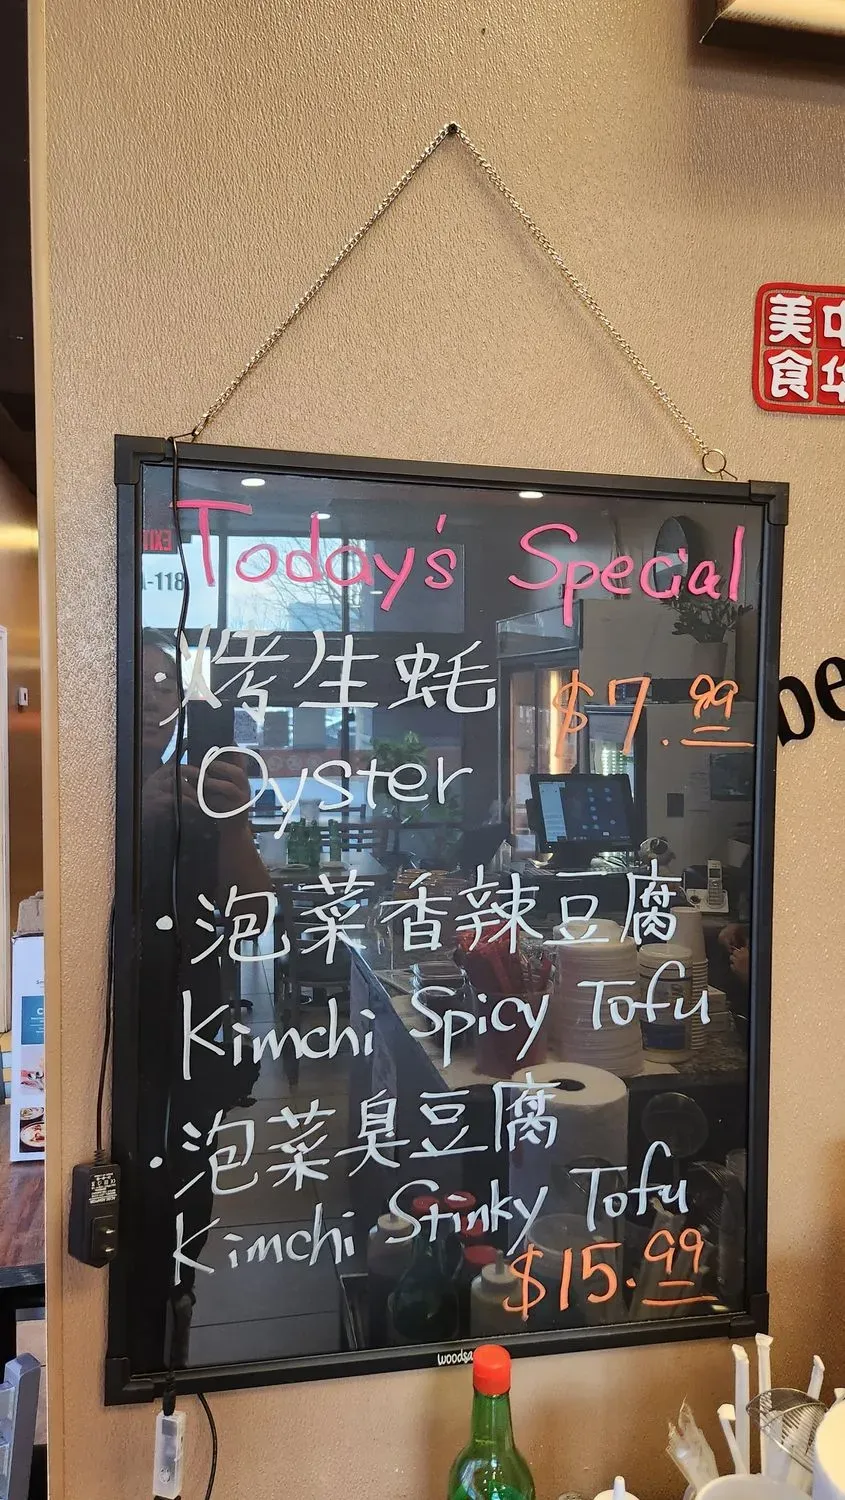 美中
食华
Today's Special
EXIT
-118
·烤生蚝 $7.99
Oyster
be
·泡菜香辣豆腐
Kimchi Spicy Tofu
·泡菜臭豆腐
Kimchi Stinky Tofu
$15.99